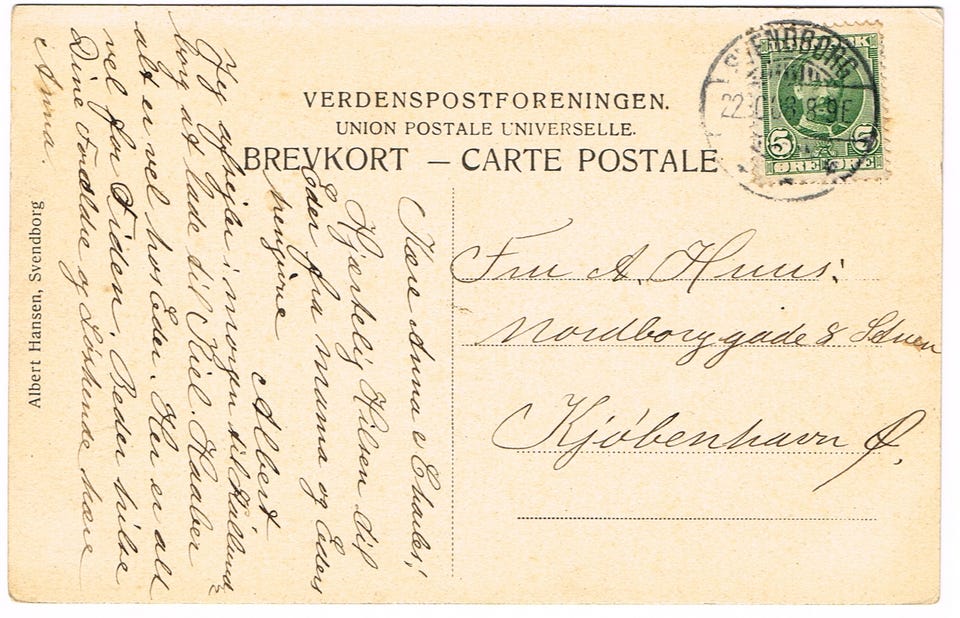 VERDENSPOSTFORENINGEN.
UNION POSTALE UNIVERSELLE.
BREVKORT — CARTE POSTALE
SVENDBORG
22 8-9E
5 5
ØRE ØRE
Fru A. Huus.
Nordborggade 8 Stuen
Kjøbenhavn Ø.
Kære Anna & Charles!
Hjærtelig Hilsen til
Eder fra Mamma og Eders
hengivne
Albert
Jeg afsejler i morgen til Kallund-
borg at lade til Kiel. Haaber
alt er vel hos Eder. Her er alt
vel for Tiden. Beder hilse
Dine Forældre og Søskende kære
Anna.
Albert Hansen, Svendborg